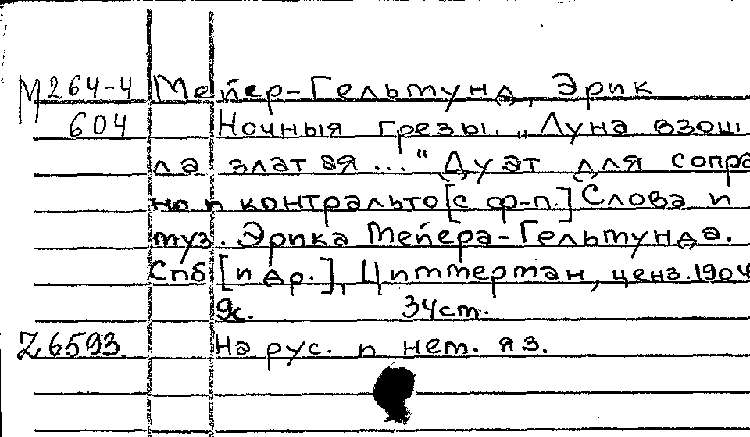 М 264-4 Мейер-Гельмунд, Эрик
604 Ночныя грезы. „Луна взош
ла златая..." Дуэт для сопра
но и контральто [с ф-п.] Слова и
муз. Эрика Мейера-Гельмунда.
Спб [и др.], Циммерман, ценз. 1904
9с. 34ст.
Z 6593 На рус. и нем. яз.